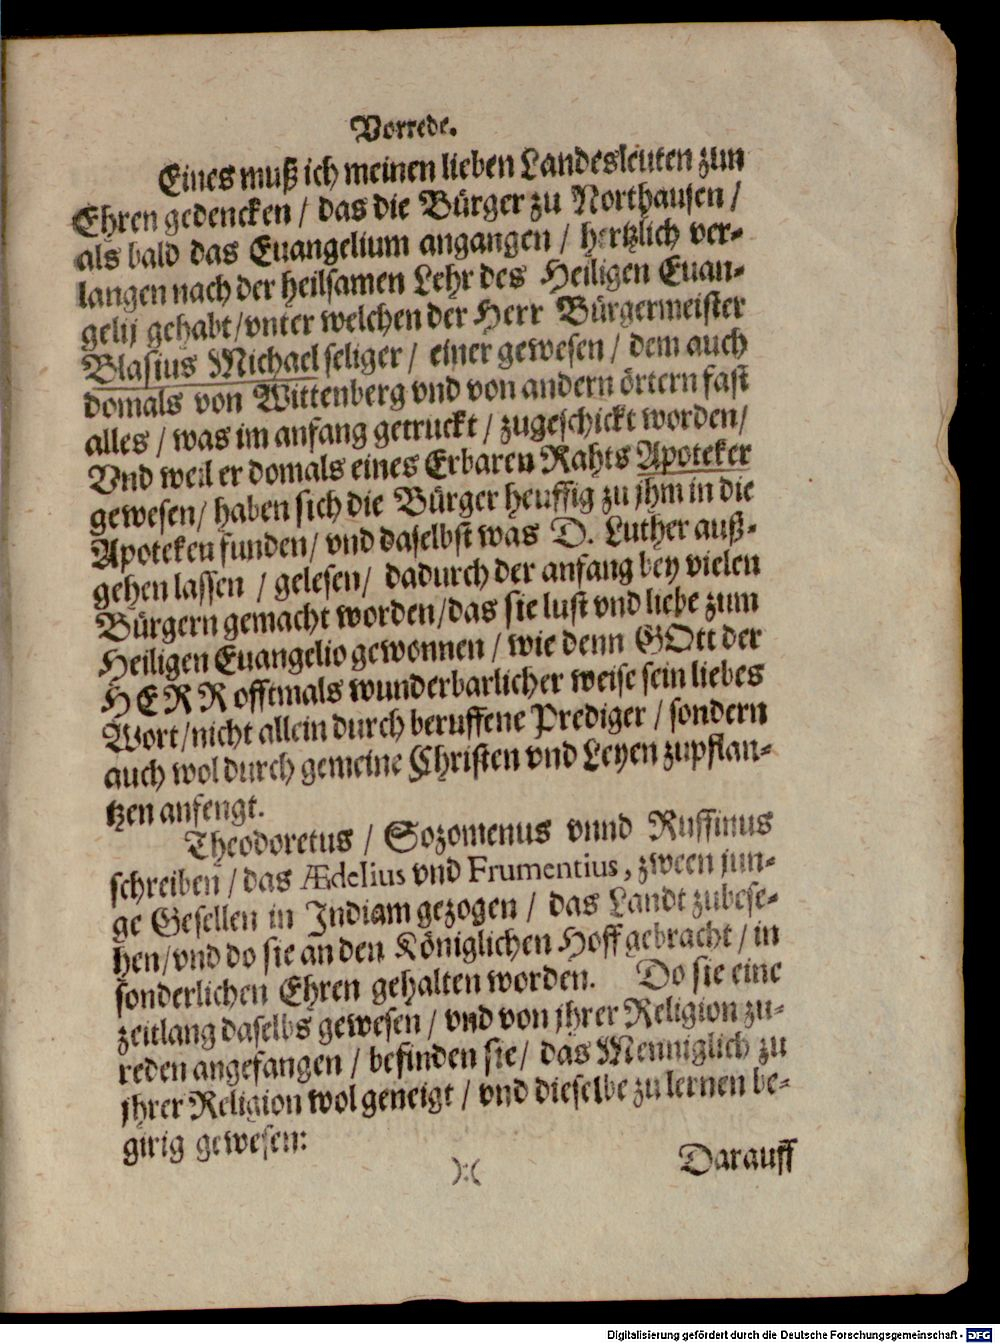 Vorrede.
Eines muß ich meinen lieben Landesleuten zun
Ehren gedencken / das die Bürger zu Northausen /
als bald das Euangelium angangen / hertzlich ver-
langen nach der heilsamen Lehr des Heiligen Euan-
gelij gehabt / vnter welchen der Herr Bürgermeister
Blasius Michael seliger / einer gewesen / dem auch
domals von Wittenberg vnd von andern örtern fast
alles / was im anfang getruckt / zugeschickt worden /
Vnd weil er domals eines Erbaren Rahts Apoteker
gewesen / haben sich die Bürger heuffig zu jhm in die
Apoteken funden / vnd daselbst was D. Luther auß-
gehen lassen / gelesen / dadurch der anfang bey vielen
Bürgern gemacht worden / das sie lust vnd liebe zum
Heiligen Euangelio gewonnen / wie denn GOtt der
HERR offtmals wunderbarlicher weise sein liebes
Wort / nicht allein durch beruffene Prediger / sondern
auch wol durch gemeine Christen vnd Leyen zupflan-
tzen anfengt.
Theodoretus / Sozomenus vnnd Ruffinus
schreiben / das Ædelius vnd Frumentius, zween jun-
ge Gesellen in Indiam gezogen / das Landt zubese-
hen / vnd do sie an den Königlichen Hoff gebracht / in
sonderlichen Ehren gehalten worden. Do sie eine
zeitlang daselbs gewesen / vnd von jhrer Religion zu-
reden angefangen / befinden sie / das Menniglich zu
jhrer Religion wol geneigt / vnd dieselbe zu lernen be-
girig gewesen:
):( Darauff
Digitalisierung gefördert durch die Deutsche Forschungsgemeinschaft - DFG